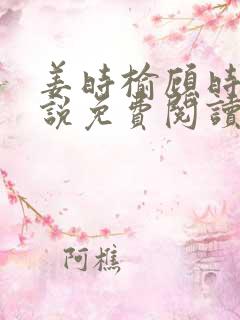 姜時榆顧時
說免費閱讀
阿樵